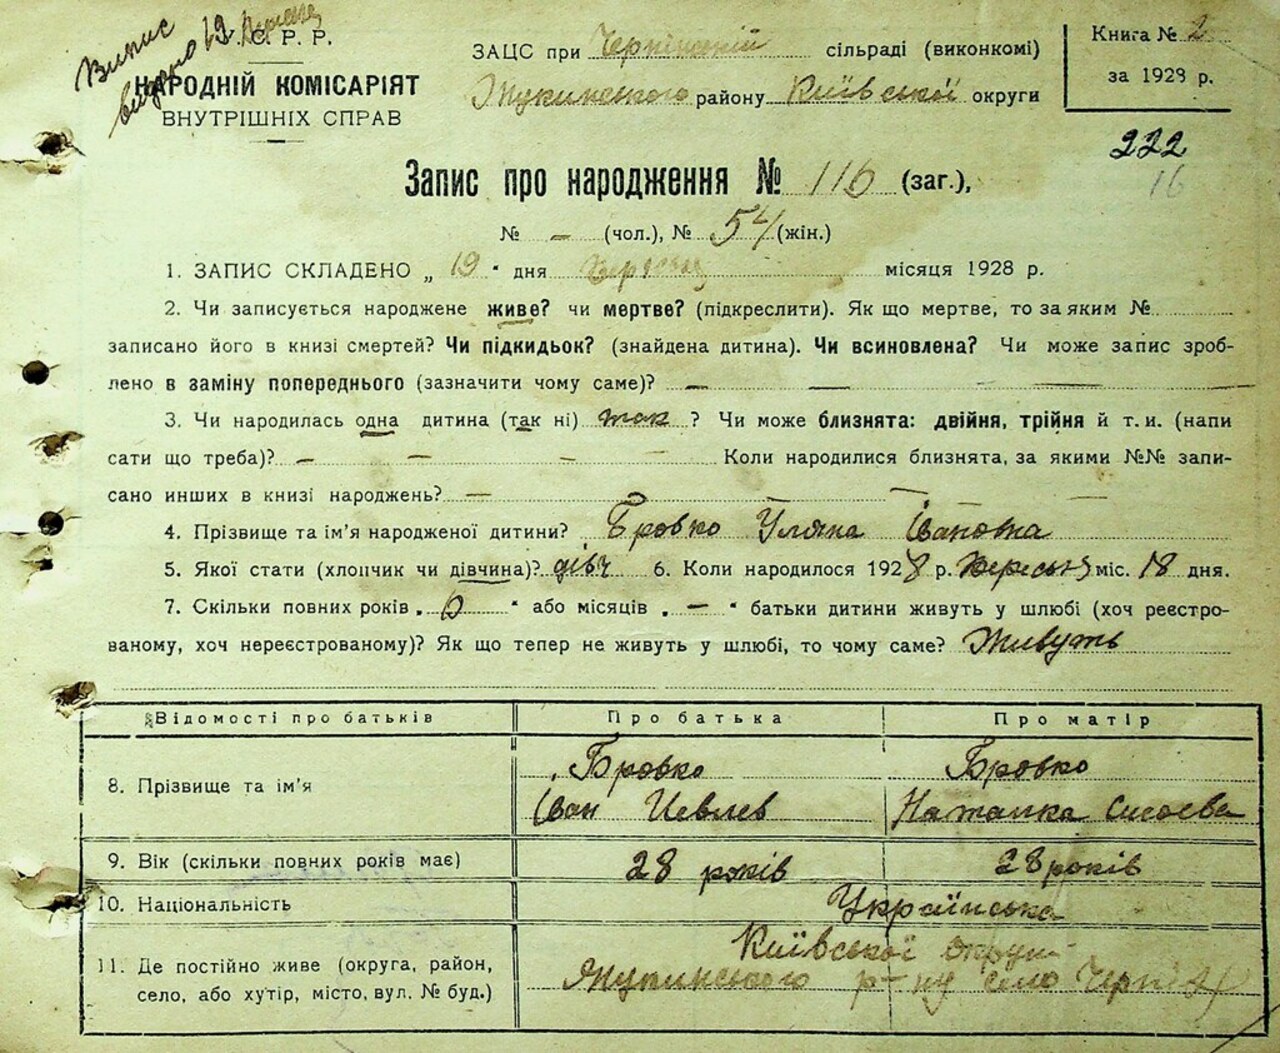 Випис
видано 19 Вересня
У. С. Р. Р.
НАРОДНІЙ КОМІСАРІЯТ
ВНУТРІШНІХ СПРАВ
ЗАЦС при сільраді (виконкомі)
району Київської округи
Книга № 2
за 1928 р.
222
16
Запис про народження № 116 (заг.),
№ – (чол.), № 54 (жін.)
1. ЗАПИС СКЛАДЕНО „ 19 “ дня Вересня місяця 1928 р.
2. Чи записується народжене живе? чи мертве? (підкреслити). Як що мертве, то за яким №
записано його в книзі смертей? Чи підкидьок? (знайдена дитина). Чи всиновлена? Чи може запис зроб-
лено в заміну попереднього (зазначити чому саме)? – – – – –
3. Чи народилась одна дитина (так ні) так ? Чи може близнята: двійня, трійня й т. и. (напи
сати що треба)? – – – – Коли народилися близнята, за якими №№ запи-
сано инших в книзі народжень? – – – –
4. Прізвище та ім’я народженої дитини? Бровко Уляна Івановна
5. Якої стати (хлопчик чи дівчина)? дівч 6. Коли народилося 1928 р. Вересня міс. 18 дня.
7. Скільки повних років „ 6 “ або місяців „ – “ батьки дитини живуть у шлюбі (хоч реєстро-
ваному, хоч нереєстрованому)? Як що тепер не живуть у шлюбі, то чому саме? Живуть
Відомості про батьків Про батька Про матір
8. Прізвище та ім’я Бровко Іван Иевлев Бровко Наталка Сисоєва
9. Вік (скільки повних років має) 28 років 28 років
10. Національність Українська
11. Де постійно живе (округа, район,
село, або хутір, місто, вул. № буд.) Київської округи
р-ну село